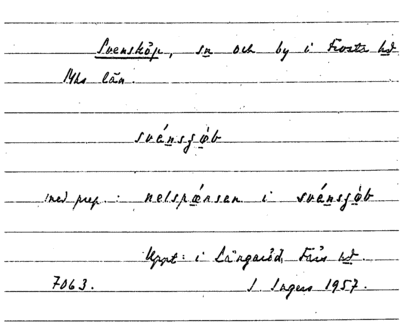 Svensköp, sn och by i Frosta hd
Mhs län.
svénsȷǿb
med prep.: nelspǽrsen i svénsȷǿb
Uppt: i Långaröd, Färs hd.
7063. I Ingers 1957.